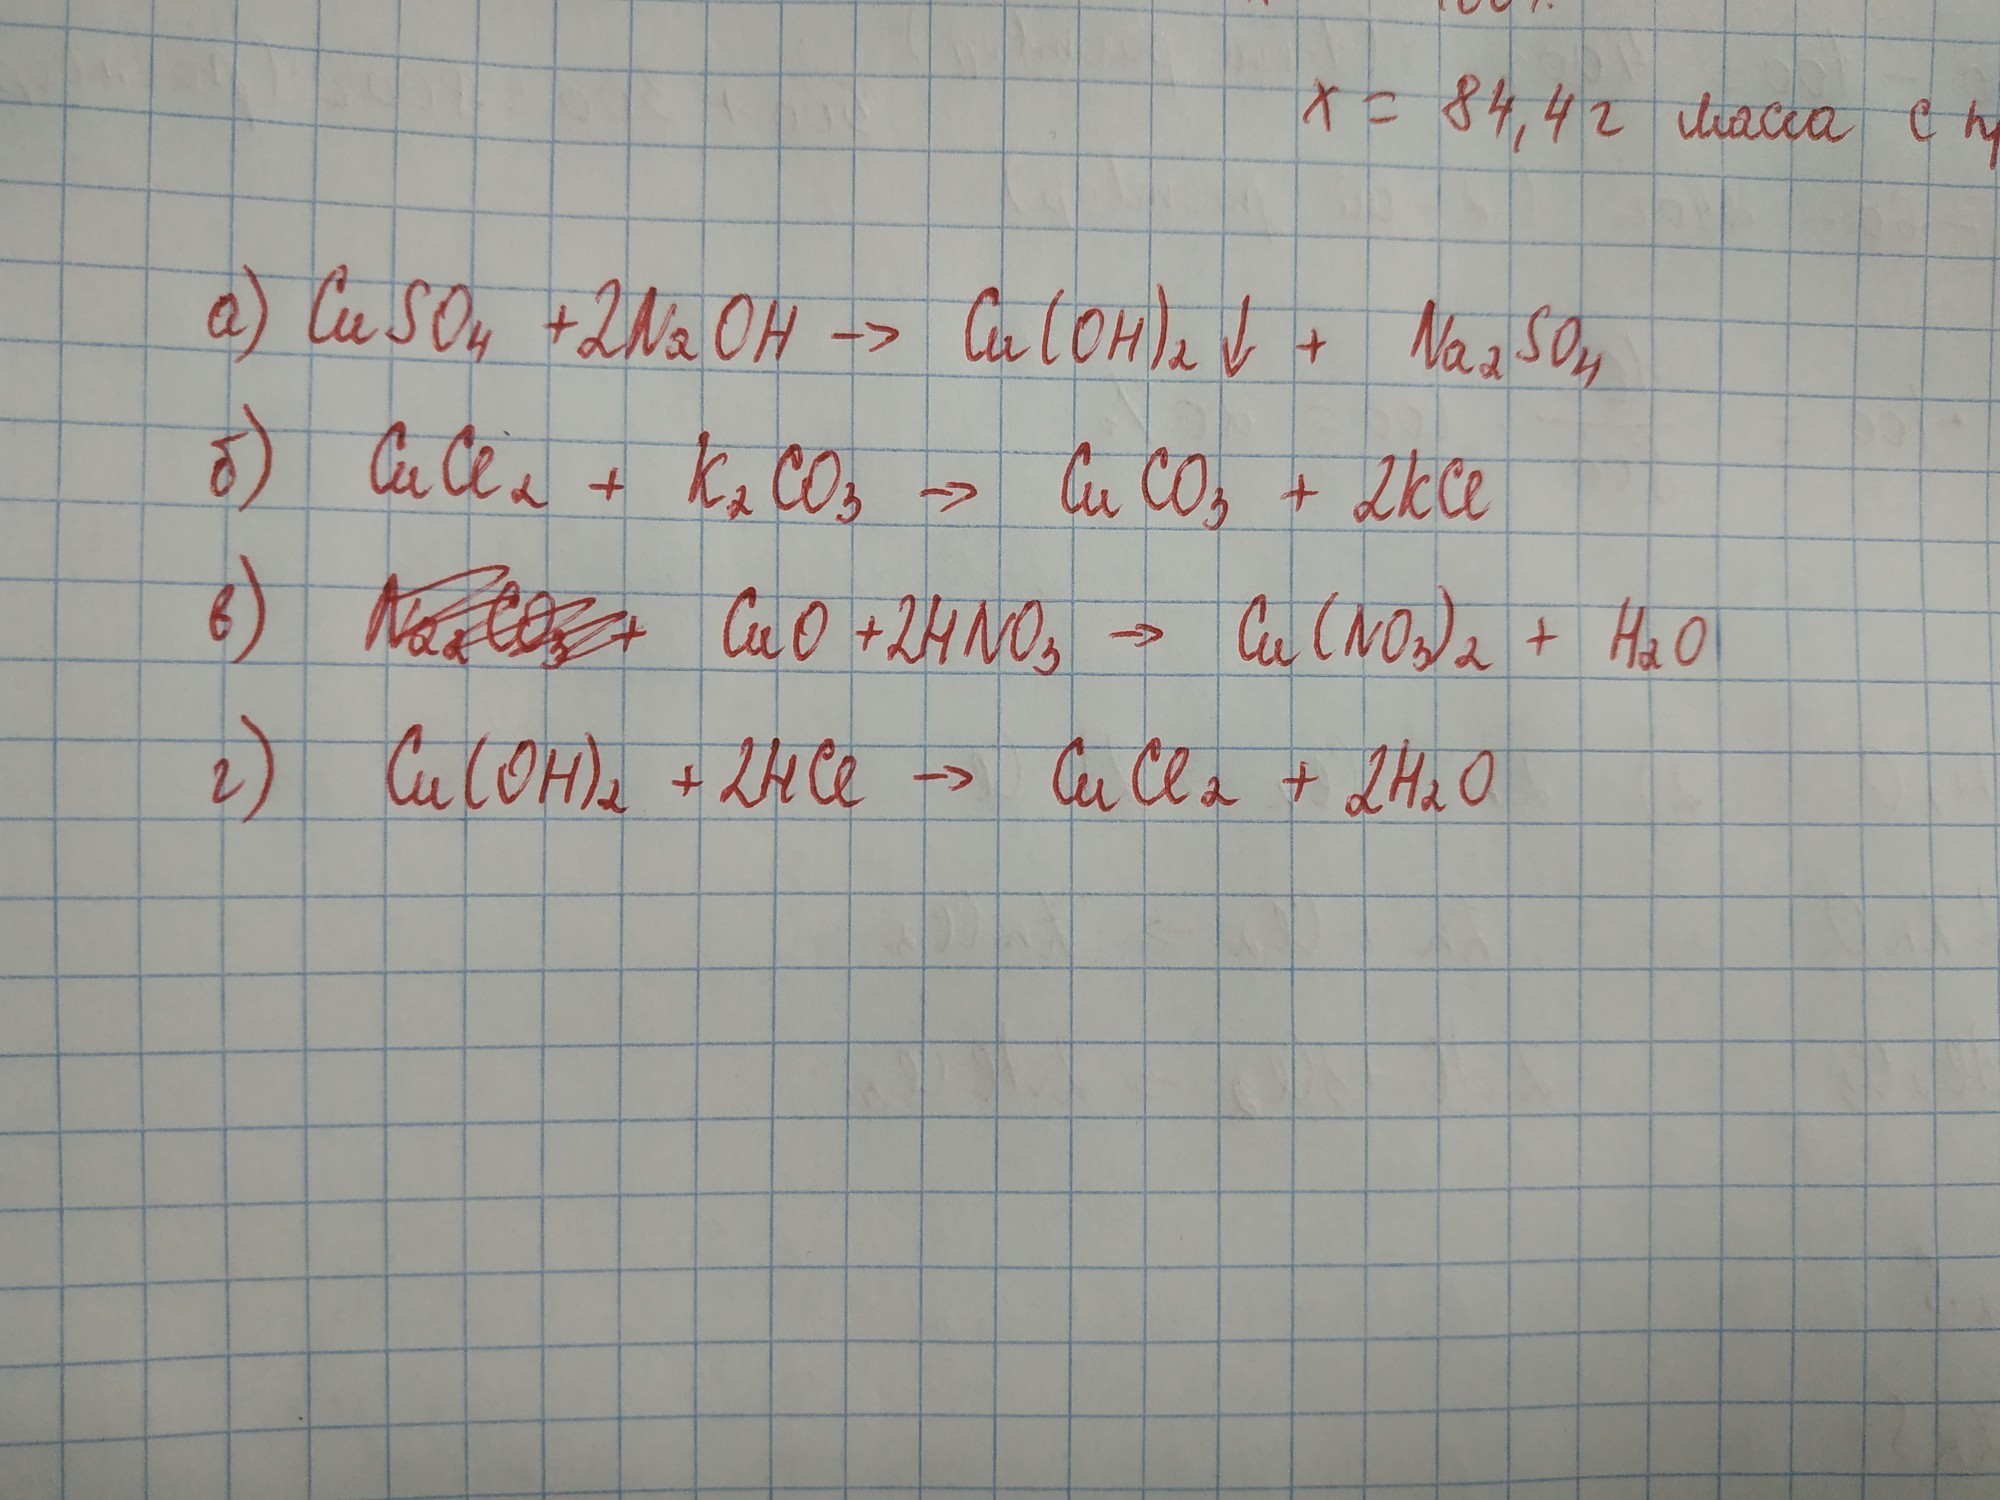 x = 84,4 г масса с
а) CuSO₄ + 2NaOH → Cu(OH)₂↓ + Na₂SO₄
б) CuCl₂ + K₂CO₃ → CuCO₃ + 2KCl
в) Na₂CO₃ + CuO + 2HNO₃ → Cu(NO₃)₂ + H₂O
г) Cu(OH)₂ + 2HCl → CuCl₂ + 2H₂O